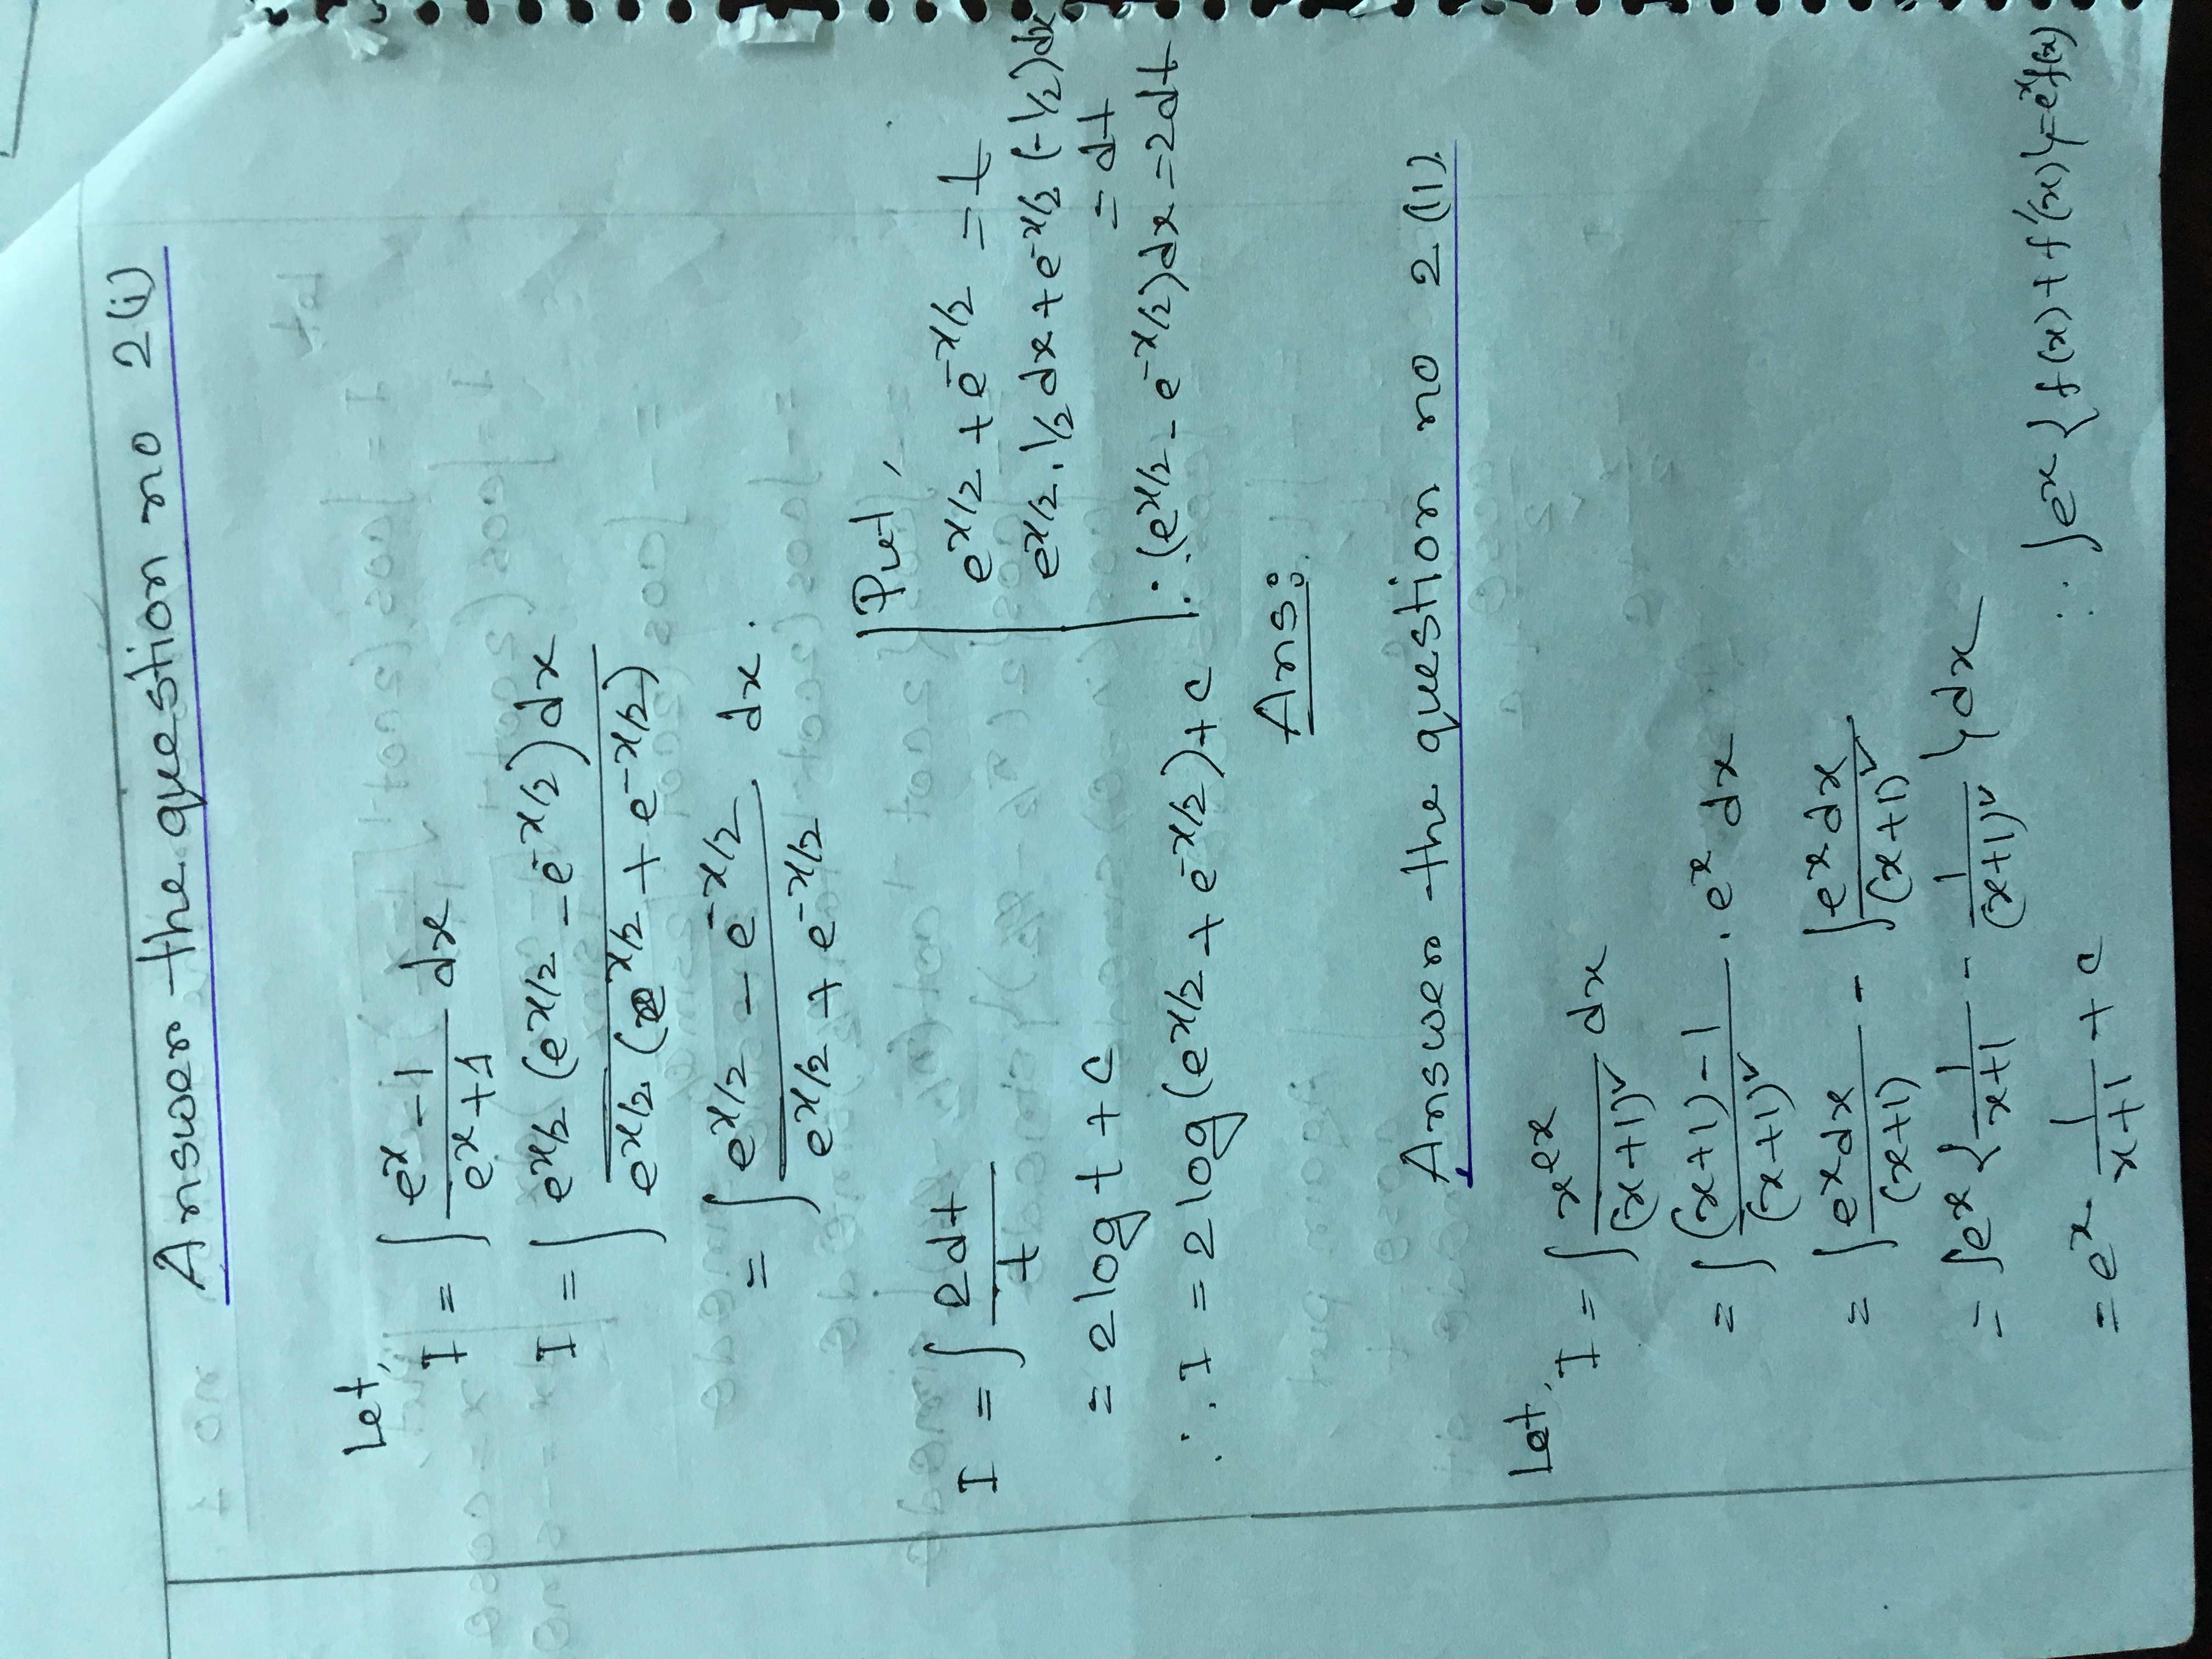 Answer the question no 2(i)
Let,
I = ∫ (e^x - 1)/(e^x + 1) dx
I = ∫ e^x/2 (e^x/2 - e^-x/2) dx / e^x/2 (e^x/2 + e^-x/2)
= ∫ (e^x/2 - e^-x/2)/(e^x/2 + e^-x/2) dx.
I = ∫ 2dt/t
= 2 log t + c
∴ I = 2 log (e^x/2 + e^-x/2) + c
Put,
e^x/2 + e^-x/2 = t
e^x/2 . 1/2 dx + e^-x/2 (-1/2) dx
= dt
∴ (e^x/2 - e^-x/2) dx = 2dt
Ans:
Answer the question no 2 (II).
Let,
I = ∫ xe^x/(x+1)² dx
= ∫ ((x+1) - 1)/(x+1)² . e^x dx
= ∫ e^x dx/(x+1) - ∫ e^x dx/(x+1)²
= ∫ e^x { 1/(x+1) - 1/(x+1)² } dx
= e^x 1/(x+1) + c
∵ ∫ e^x { f(x) + f'(x) } = e^x f(x)